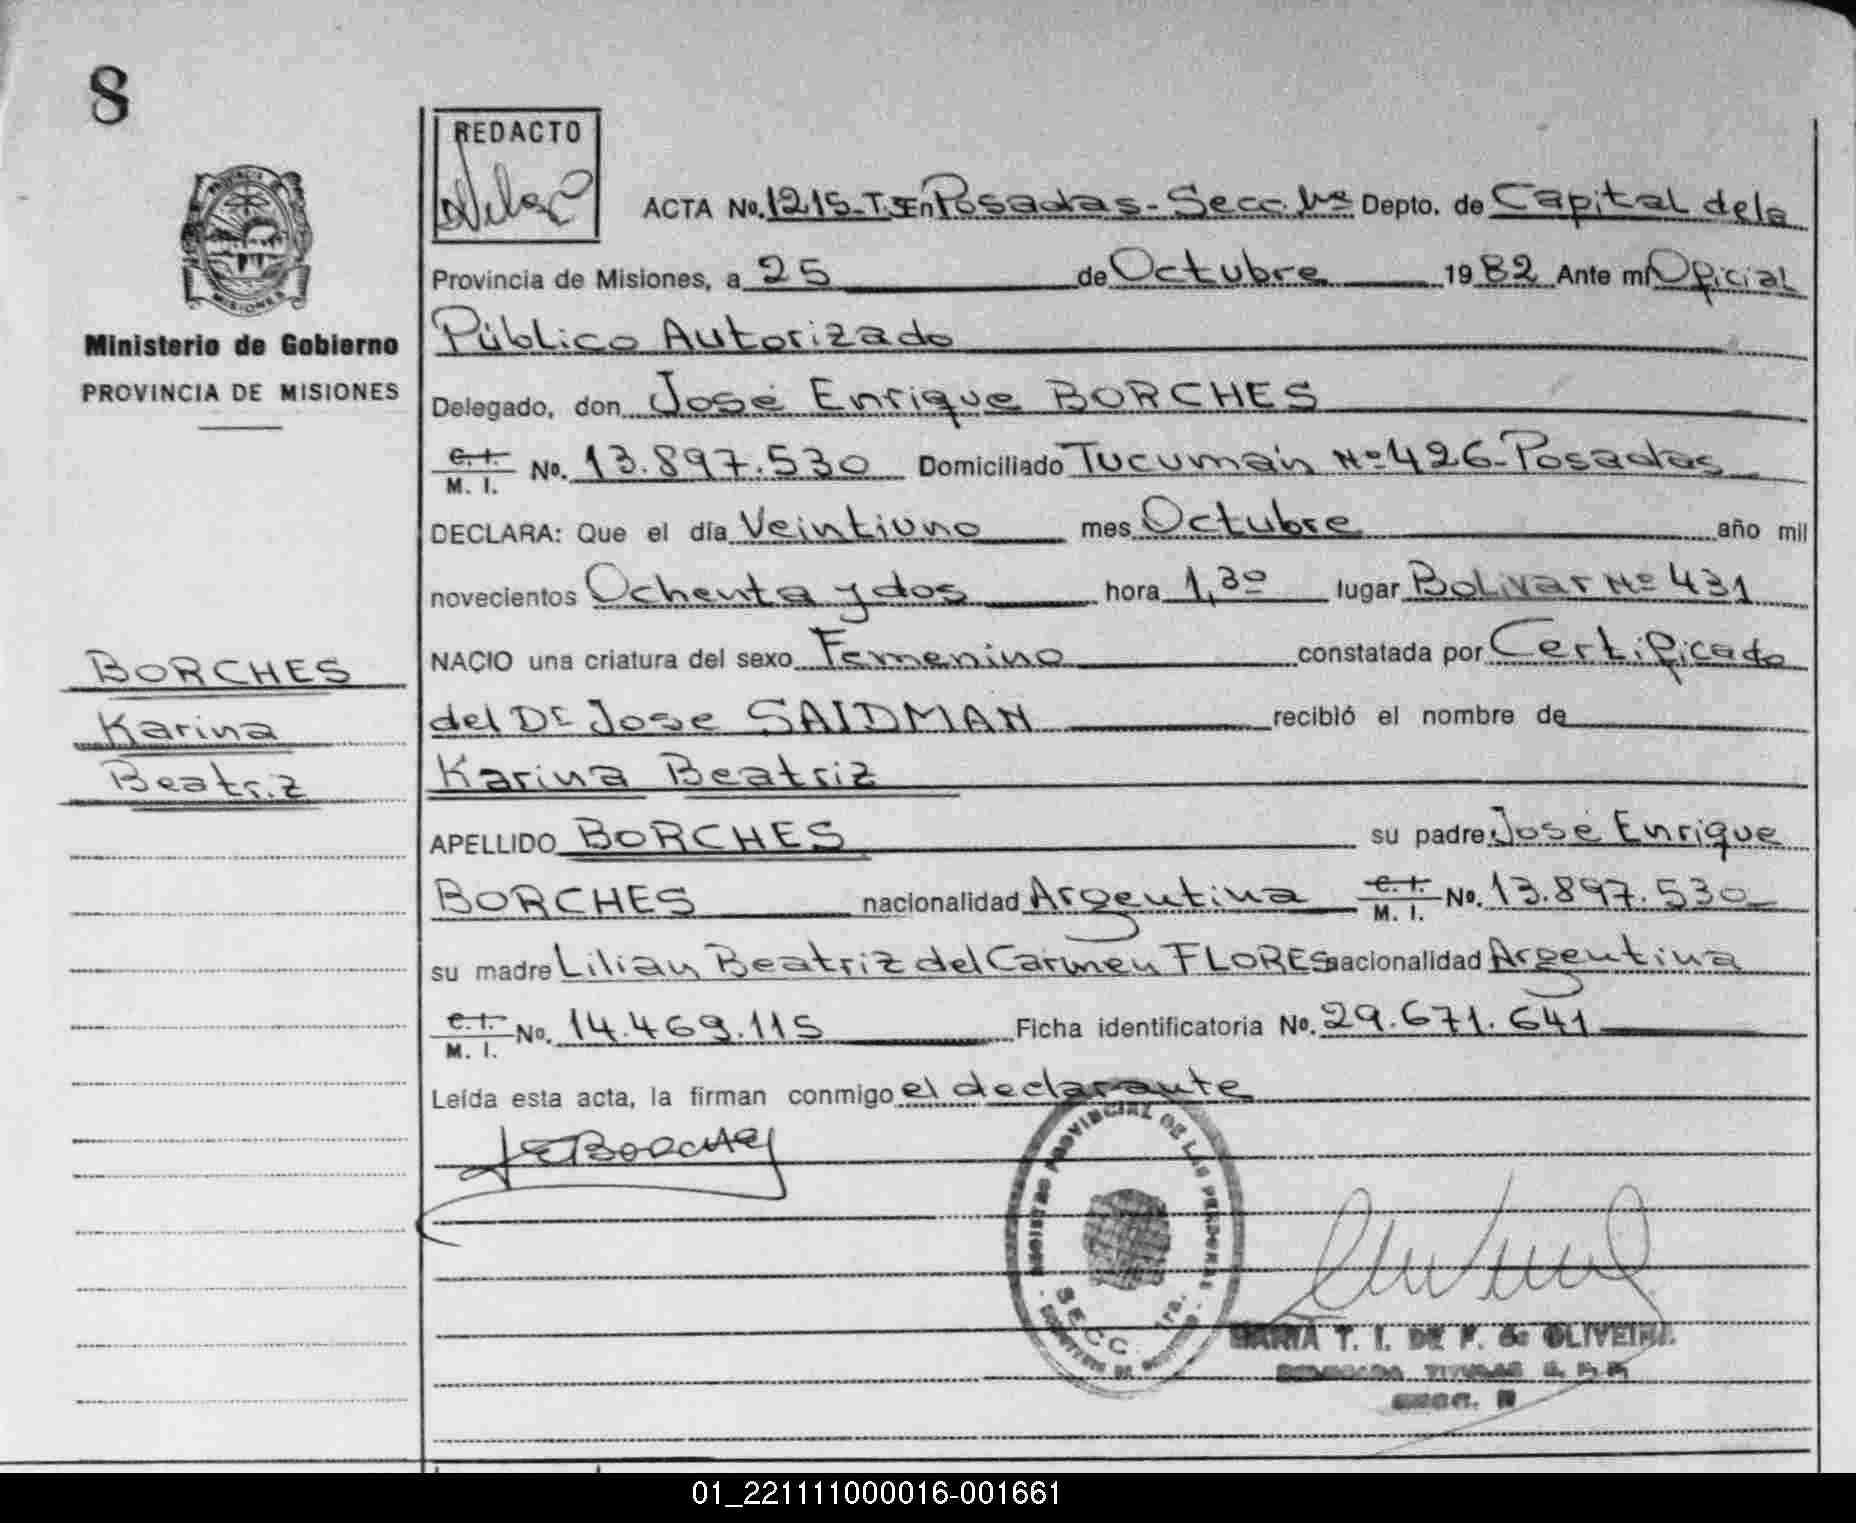 8
REDACTO
ACTA No. 1215-T.3 En Posadas - Secc. 1ra Depto. de Capital de la
Provincia de Misiones, a 25 de Octubre 1982 Ante mí Oficial
Público Autorizado
Ministerio de Gobierno
PROVINCIA DE MISIONES
Delegado, don José Enrique BORCHES
C. I.
M. I. No. 13.897.530 Domiciliado Tucumán Nº 426-Posadas
DECLARA: Que el día Veintiuno mes Octubre año mil
novecientos Ochenta y dos hora 1,30 lugar Bolivar Nº 431
NACIO una criatura del sexo Femenino constatada por Certificado
del Dr Jose SAIDMAN recibió el nombre de
Karina Beatriz
BORCHES
Karina
Beatriz
APELLIDO BORCHES su padre José Enrique
BORCHES nacionalidad Argentina C. I.
M. I. No. 13.897.530
su madre Lilian Beatriz del Carmen FLORES nacionalidad Argentina
C. I.
M. I. No. 14.469.115 Ficha identificatoria No. 29.671.641
Leída esta acta, la firman conmigo el declarante
JEBorches
REGISTRO PROVINCIAL DE LAS PERSONAS
SECC. 1ra.
MARIA T. I. DE F. de OLIVEIRA
01_221111000016-001661